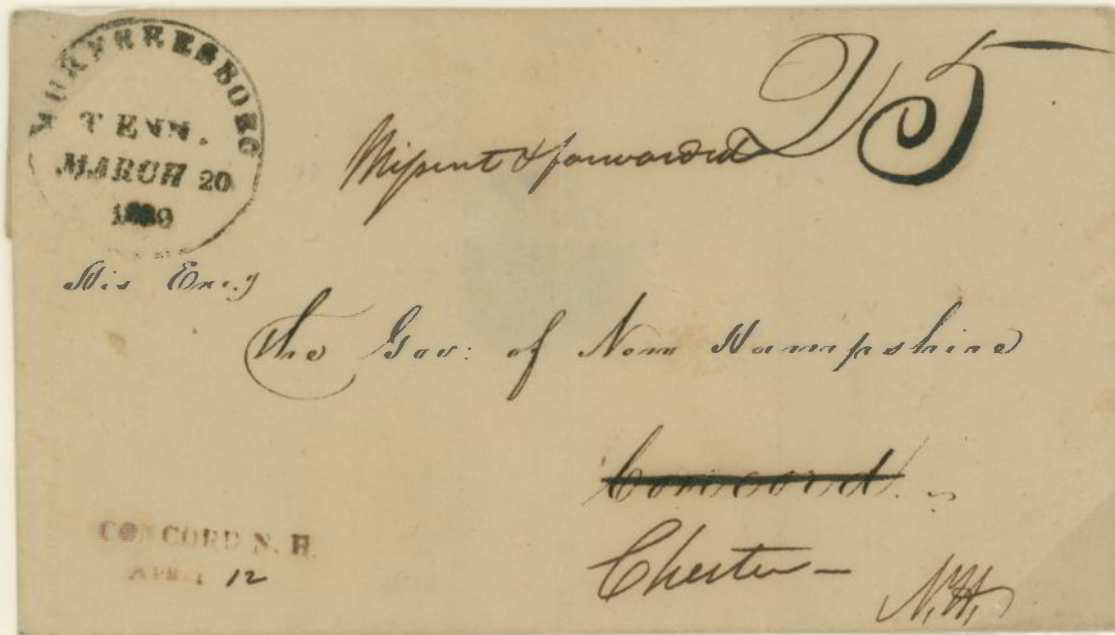 MURFREESBORO
TENN.
MARCH 20
Missent & forwarded 25
His Exc.y
The Gov: of New Hampshire
Concord.
CONCORD N. H.
APRIL 12
Chester -
N.H.